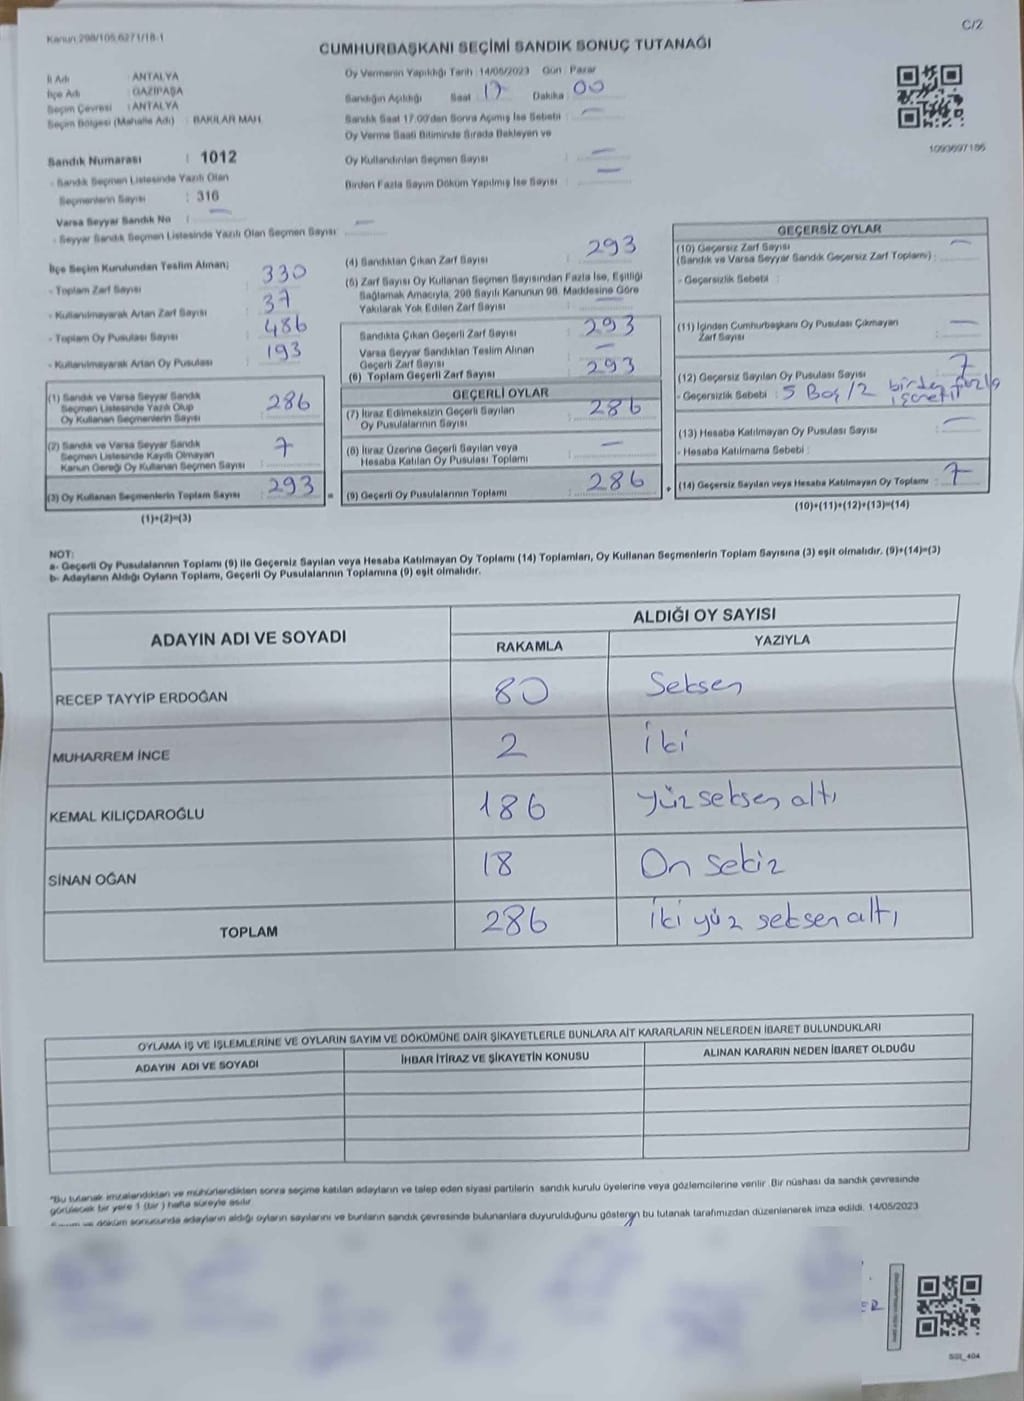 C/2
Kanun:298/105,6271/18-1
CUMHURBAŞKANI SEÇİMİ SANDIK SONUÇ TUTANAĞI
İl Adı : ANTALYA
İlçe Adı : GAZİPAŞA
Seçim Çevresi : ANTALYA
Seçim Bölgesi (Mahalle Adı) : BAKILAR MAH.
Sandık Numarası : 1012
- Sandık Seçmen Listesinde Yazılı Olan
Seçmenlerin Sayısı : 316
Varsa Seyyar Sandık No : —
- Seyyar Sandık Seçmen Listesinde Yazılı Olan Seçmen Sayısı : —
Oy Vermenin Yapıldığı Tarih : 14/05/2023 Gün : Pazar
Sandığın Açıldığı Saat 17 Dakika : 00
Sandık Saat 17:00'den Sonra Açımış İse Sebebi : —
Oy Verme Saati Bitiminde Sırada Bekleyen ve
Oy Kullandırılan Seçmen Sayısı : —
Birden Fazla Sayım Döküm Yapılmış İse Sayısı : —
1093697186
İlçe Seçim Kurulundan Teslim Alınan;
- Toplam Zarf Sayısı : 330
- Kullanılmayarak Artan Zarf Sayısı : 37
- Toplam Oy Pusulası Sayısı : 486
- Kullanılmayarak Artan Oy Pusulası : 193
(1) Sandık ve Varsa Seyyar Sandık
Seçmen Listesinde Yazılı Olup
Oy Kullanan Seçmenlerin Sayısı : 286
(2) Sandık ve Varsa Seyyar Sandık
Seçmen Listesinde Kayıtlı Olmayan
Kanun Gereği Oy Kullanan Seçmen Sayısı : 7
(3) Oy Kullanan Seçmenlerin Toplam Sayısı : 293 =
(1)+(2)=(3)
(4) Sandıktan Çıkan Zarf Sayısı : 293
(5) Zarf Sayısı Oy Kullanan Seçmen Sayısından Fazla İse, Eşitliği
Sağlamak Amacıyla, 298 Sayılı Kanunun 98. Maddesine Göre
Yakılarak Yok Edilen Zarf Sayısı : —
Sandıkta Çıkan Geçerli Zarf Sayısı : 293
Varsa Seyyar Sandıktan Teslim Alınan
Geçerli Zarf Sayısı : —
(6) Toplam Geçerli Zarf Sayısı : 293
GEÇERLİ OYLAR
(7) İtiraz Edilmeksizin Geçerli Sayılan
Oy Pusulalarının Sayısı : 286
(8) İtiraz Üzerine Geçerli Sayılan veya
Hesaba Katılan Oy Pusulası Toplamı : —
(9) Geçerli Oy Pusulalarının Toplamı : 286 +
GEÇERSİZ OYLAR
(10) Geçersiz Zarf Sayısı
(Sandık ve Varsa Seyyar Sandık Geçersiz Zarf Toplamı) : —
- Geçersizlik Sebebi :
(11) İçinden Cumhurbaşkanı Oy Pusulası Çıkmayan
Zarf Sayısı : —
(12) Geçersiz Sayılan Oy Pusulası Sayısı : 7
- Geçersizlik Sebebi : 5 Boş/2 birden fazla işaretli
(13) Hesaba Katılmayan Oy Pusulası Sayısı : —
- Hesaba Katılmama Sebebi :
(14) Geçersiz Sayılan veya Hesaba Katılmayan Oy Toplamı : 7
(10)+(11)+(12)+(13)=(14)
NOT:
a- Geçerli Oy Pusulalarının Toplamı (9) ile Geçersiz Sayılan veya Hesaba Katılmayan Oy Toplamı (14) Toplamları, Oy Kullanan Seçmenlerin Toplam Sayısına (3) eşit olmalıdır. (9)+(14)=(3)
b- Adayların Aldığı Oyların Toplamı, Geçerli Oy Pusulalarının Toplamına (9) eşit olmalıdır.
ADAYIN ADI VE SOYADI ALDIĞI OY SAYISI
RAKAMLA YAZIYLA
RECEP TAYYİP ERDOĞAN 80 Seksen
MUHARREM İNCE 2 iki
KEMAL KILIÇDAROĞLU 186 yüz seksen altı
SİNAN OĞAN 18 On sekiz
TOPLAM 286 iki yüz seksen altı
OYLAMA İŞ VE İŞLEMLERİNE VE OYLARIN SAYIM VE DÖKÜMÜNE DAİR ŞİKAYETLERLE BUNLARA AİT KARARLARIN NELERDEN İBARET BULUNDUKLARI
ADAYIN ADI VE SOYADI İHBAR İTİRAZ VE ŞİKAYETİN KONUSU ALINAN KARARIN NEDEN İBARET OLDUĞU
*Bu tutanak imzalandıktan ve mühürlendikten sonra seçime katılan adayların ve talep eden siyasi partilerin sandık kurulu üyelerine veya gözlemcilerine verilir. Bir nüshası da sandık çevresinde
görülecek bir yere 1 (bir) hafta süreyle asılır.
Sayım ve döküm sonucunda adayların aldığı oyların sayılarını ve bunların sandık çevresinde bulunanlara duyurulduğunu gösteren bu tutanak tarafımızdan düzenlenerek imza edildi. 14/05/2023
SSI_404